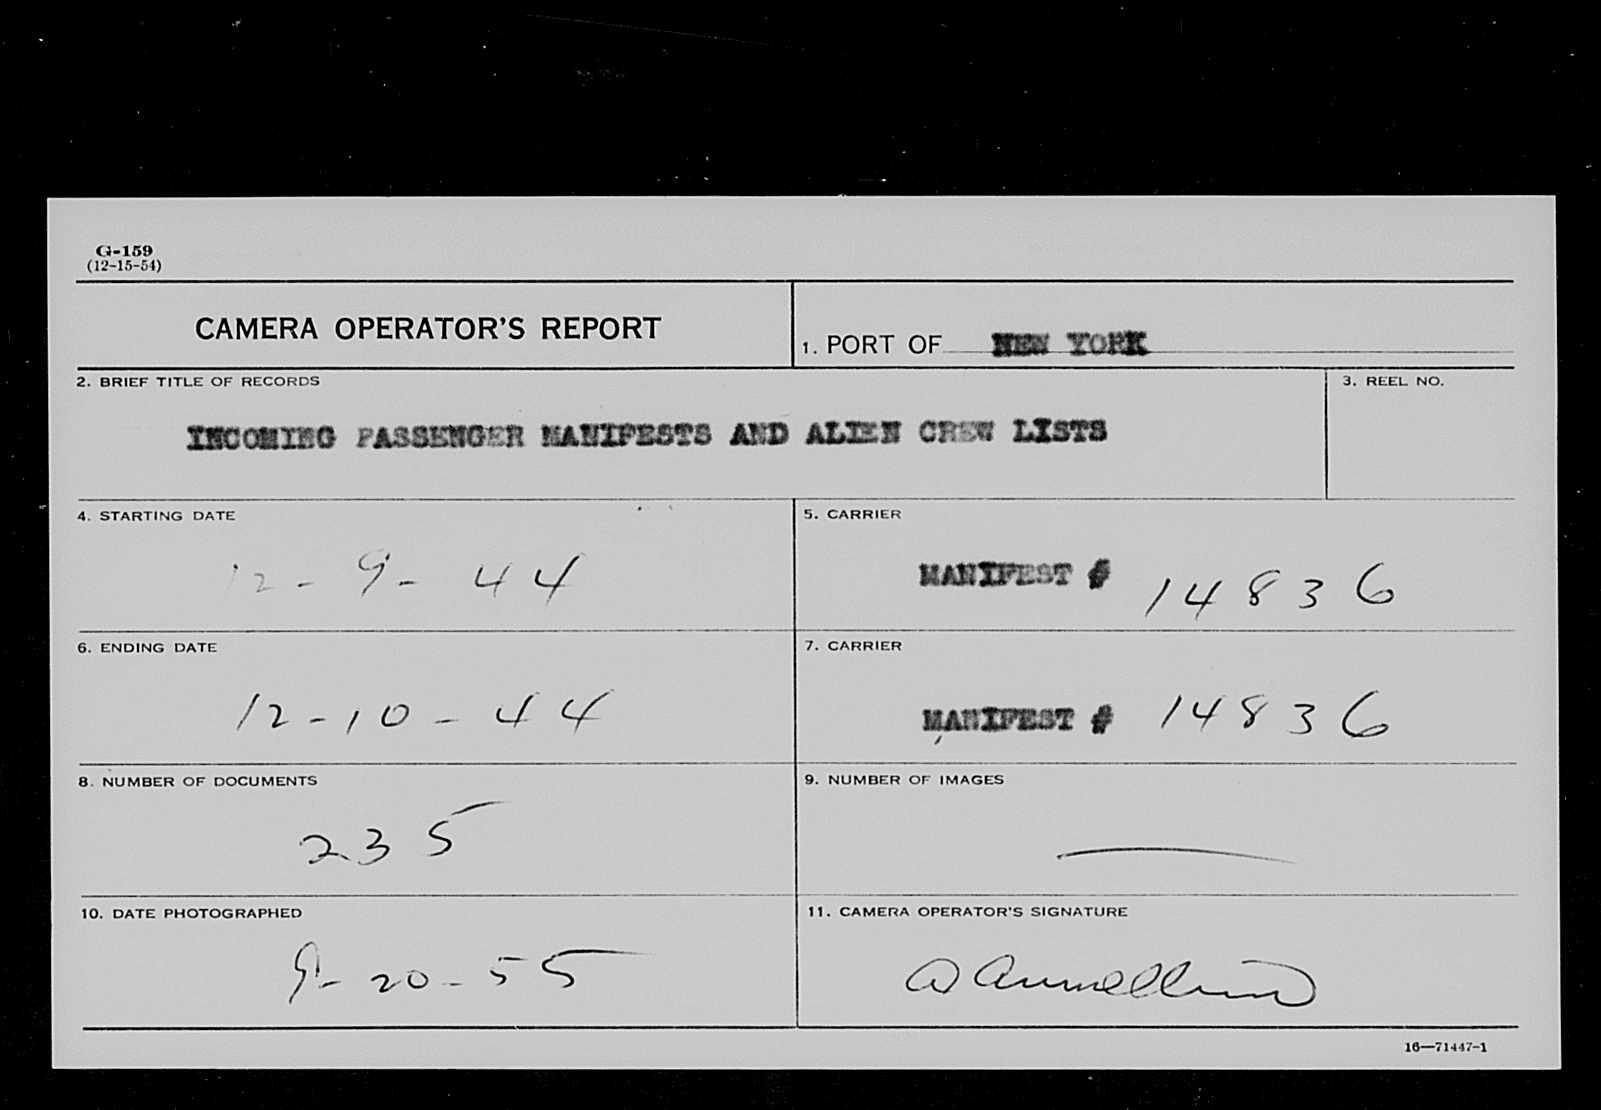 G-159
(12-15-54)
CAMERA OPERATOR'S REPORT
1. PORT OF NEW YORK
2. BRIEF TITLE OF RECORDS
3. REEL NO.
INCOMING PASSENGER MANIFESTS AND ALIEN CREW LISTS
4. STARTING DATE
12-9-44
5. CARRIER
MANIFEST # 14836
6. ENDING DATE
12-10-44
7. CARRIER
MANIFEST # 14836
8. NUMBER OF DOCUMENTS
235
9. NUMBER OF IMAGES
—
10. DATE PHOTOGRAPHED
9-20-55
11. CAMERA OPERATOR'S SIGNATURE
16—71447-1